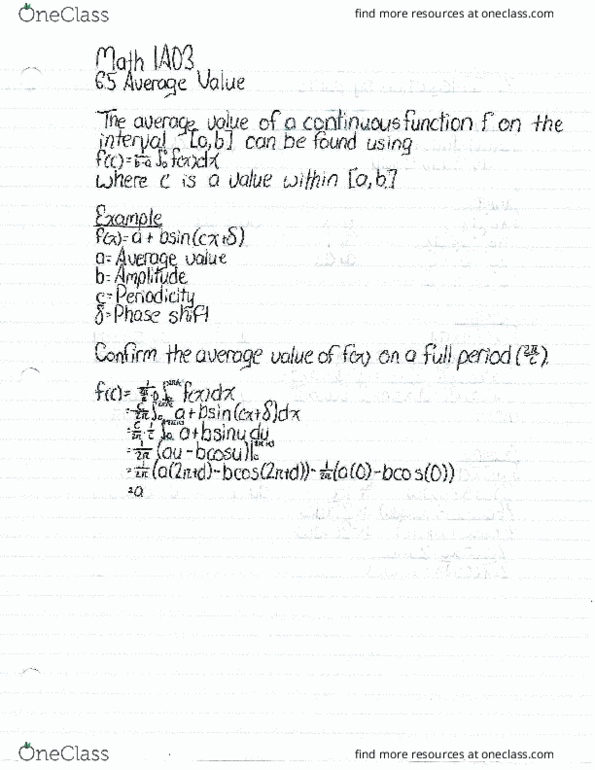 OneClass
find more resources at oneclass.com
Math 1A03
6.5 Average Value
The average value of a continuous function f on the
interval [a,b] can be found using
f(c)=1/b-a ∫ f(x)dx
where c is a value within [a,b]
Example
f(x)=a+bsin(cx+δ)
a=Average value
b=Amplitude
c=Periodicity
δ=Phase shift
Confirm the average value of f(x) on a full period (2π/c).
f(c)= f(x)dx
=c/2π ∫ a+bsin(cx+δ)dx
=c/2π · 1/c ∫ a+bsinu du
=1/2π (au-bcosu)|
=1/2π (a(2π+d)-bcos(2π+d))-1/2π(a(0)-bcos(0))
=a
OneClass
find more resources at oneclass.com